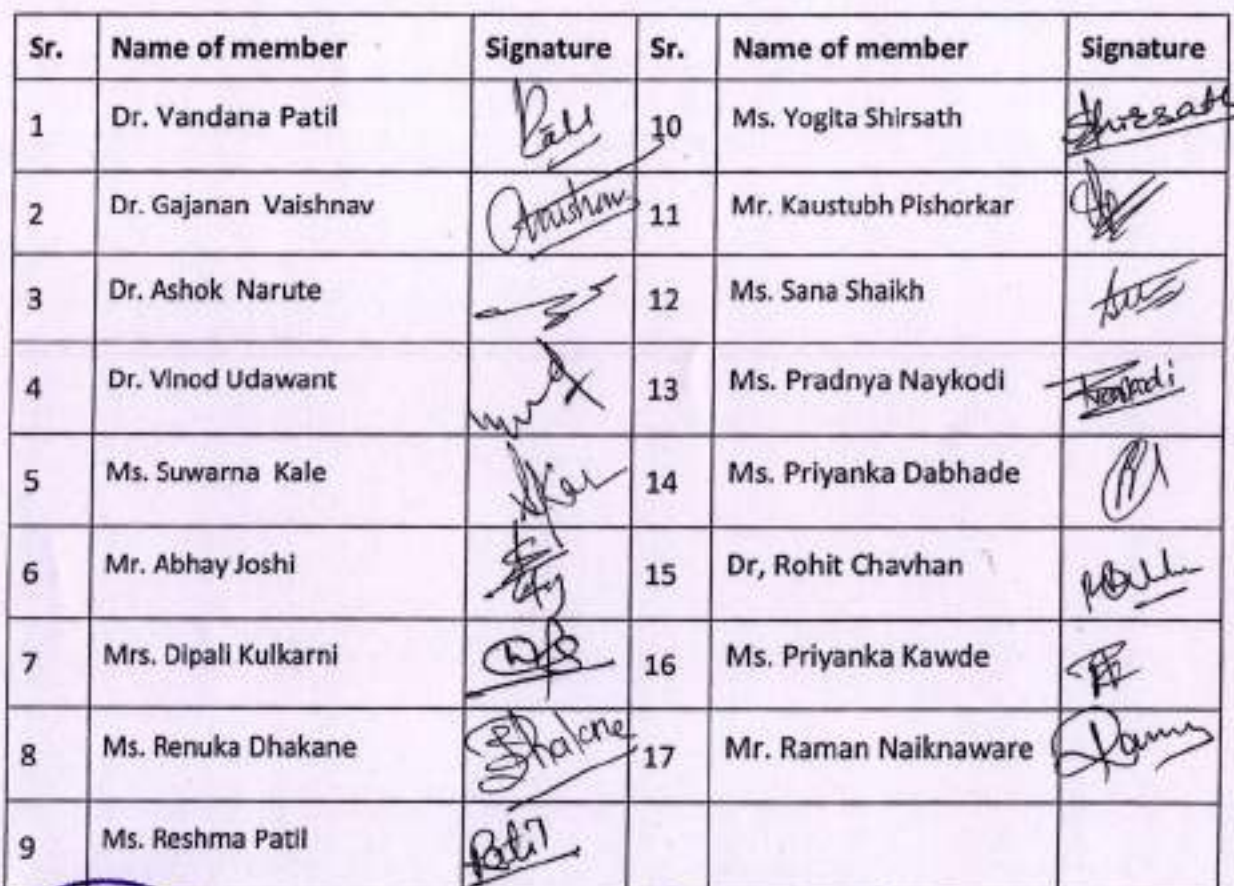 Sr. Name of member Signature Sr. Name of member Signature
1 Dr. Vandana Patil 10 Ms. Yogita Shirsath Shirsath
2 Dr. Gajanan Vaishnav 11 Mr. Kaustubh Pishorkar
3 Dr. Ashok Narute 12 Ms. Sana Shaikh
4 Dr. Vinod Udawant 13 Ms. Pradnya Naykodi
5 Ms. Suwarna Kale 14 Ms. Priyanka Dabhade
6 Mr. Abhay Joshi 15 Dr, Rohit Chavhan
7 Mrs. Dipali Kulkarni 16 Ms. Priyanka Kawde
8 Ms. Renuka Dhakane 17 Mr. Raman Naiknaware
9 Ms. Reshma Patil Patil